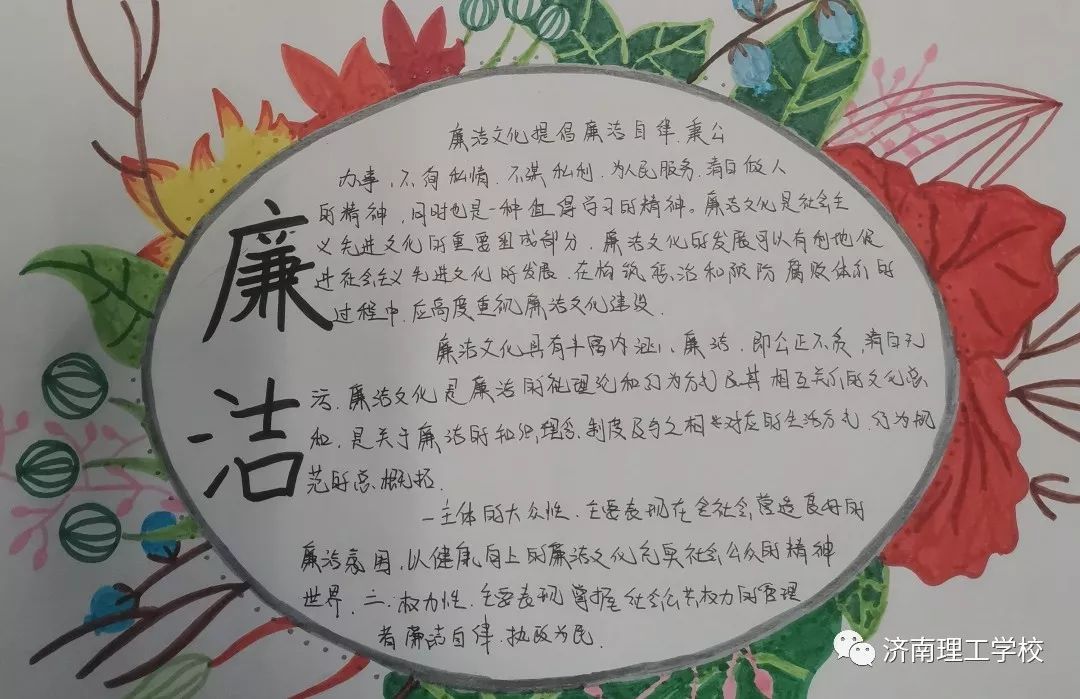 廉洁
廉洁文化提倡廉洁自律、秉公
办事,不徇私情,不谋私利,为人民服务,清白做人
的精神,同时也是一种值得学习的精神。廉洁文化是社会主
义先进文化的重要组成部分,廉洁文化的发展可以有利地促
进社会主义先进文化的发展,在构筑惩治和预防腐败体系的
过程中,应高度重视廉洁文化建设.
廉洁文化具有丰富内涵,廉洁,即公正不贪,清白无
污,廉洁文化是廉洁的理论和行为方式及其相互关系的文化总
和,是关于廉洁的知识,理念,制度及与之相对应的生活方式,行为规
范的总概括.
一主体的大众性,主要表现在全社会营造良好的
廉洁氛围,以健康向上的廉洁文化充实社会公众的精神
世界.二.权力性,主要表现掌握社会公共权力的管理
者廉洁自律,执政为民.
济南理工学校